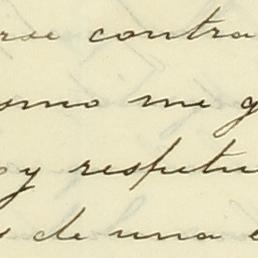 rse contra
como me g
y respetu
s de una e